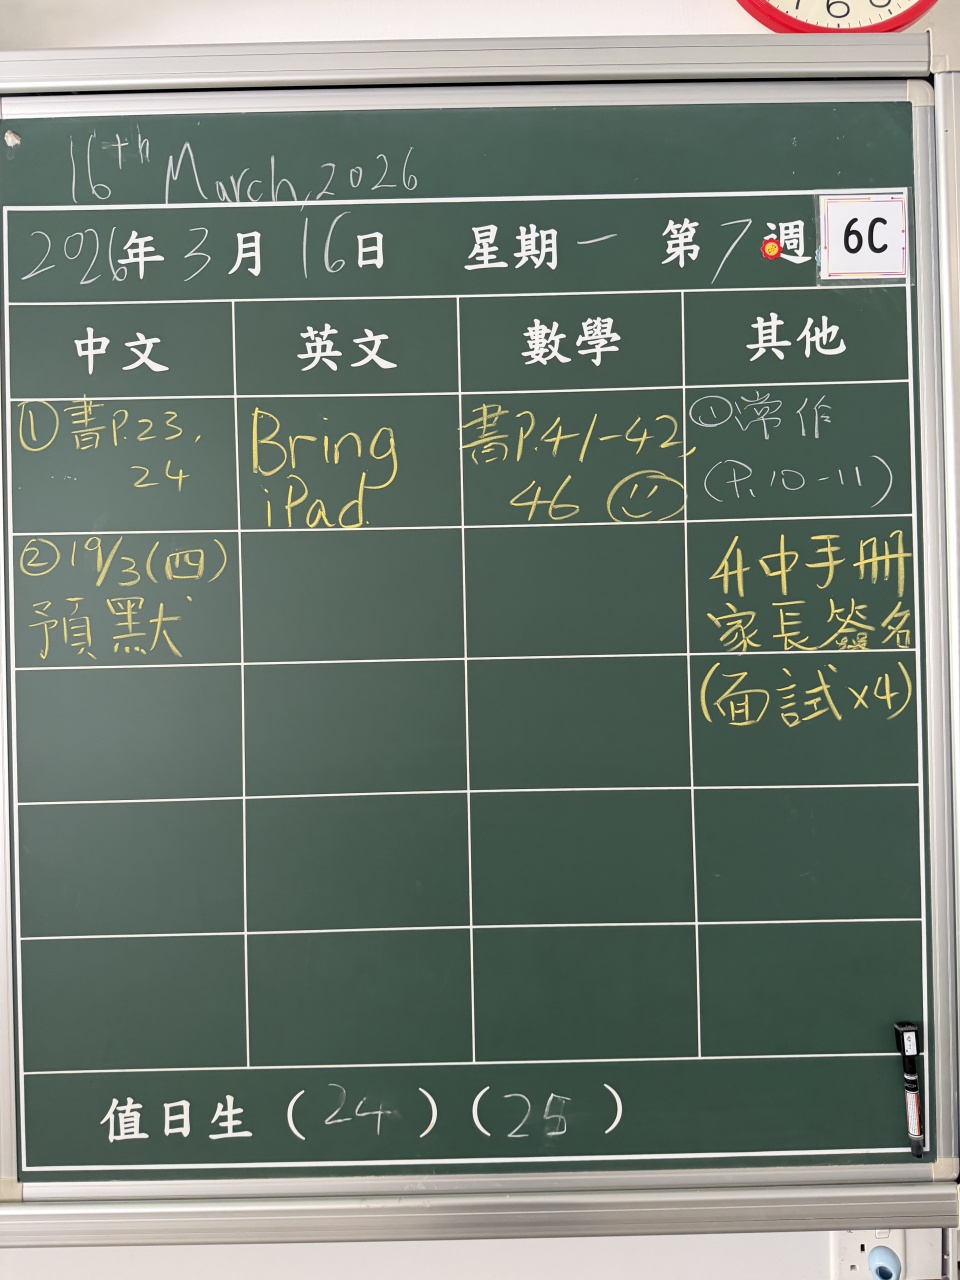 16th March, 2026
2026年3月16日 星期一 第7週
6C
中文 英文 數學 其他
①書P.23,
24
Bring
iPad
書P.41-42,
46
①常作
(P.10-11)
②19/3(四)
預默
升中手冊
家長簽名
(面試x4)
值日生 (24) (25)